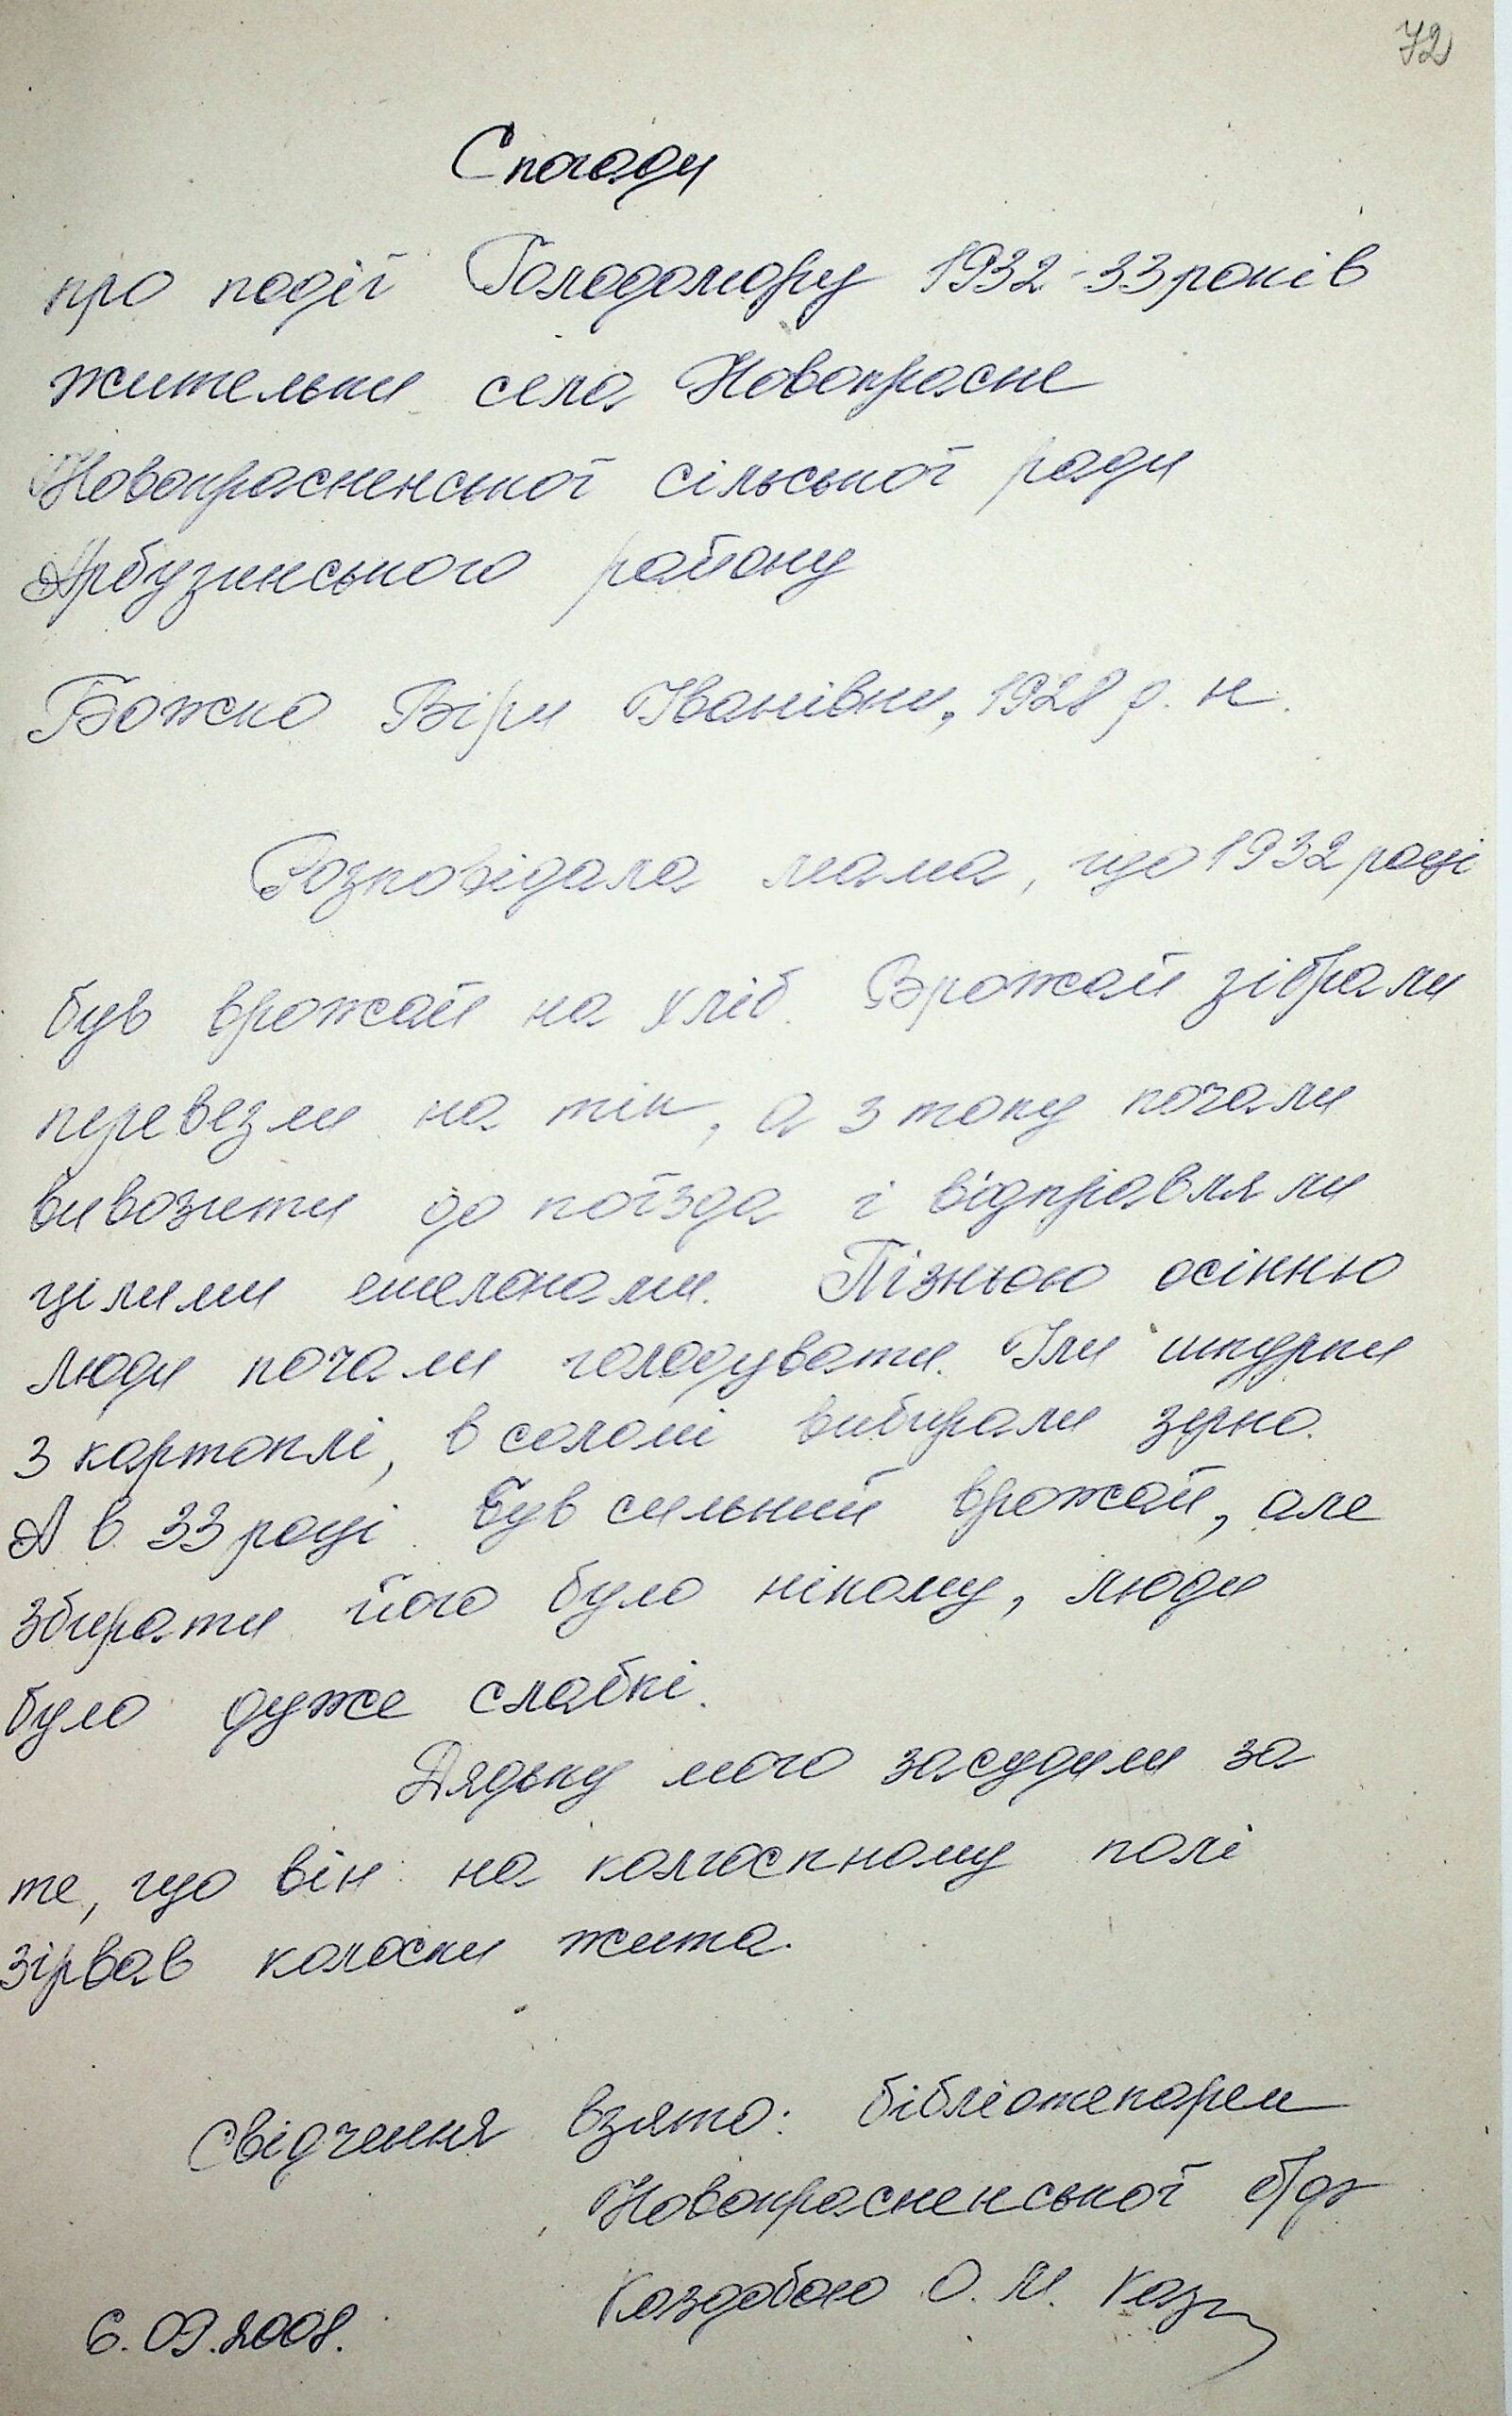 72
Спогади
про події Голодомору 1932-33 років
жительки села Новокрасне
Новокрасненської сільської ради
Арбузинського району
Божко Віри Іванівни, 1928 р. н.
Розповідала мама, що 1932 році
був врожай на хліб. Врожай зібрали
перевезли на тік, а з току почали
вивозити до поїзда і відправляли
цілими ешелонами. Пізньою осінню
люди почали голодувати. Їли шкурки
з картоплі, в соломі вибирали зерно.
А в 33 році був сильний врожай, але
збирати його було нікому, люди
було дуже слабкі.
Дядьку мого засудили за
те, що він на колгоспному полі
зірвав колоски жита.
Свідчення взято: бібліотекарем
Новокрасненської
Каздобою О. М.
6.09.2008.